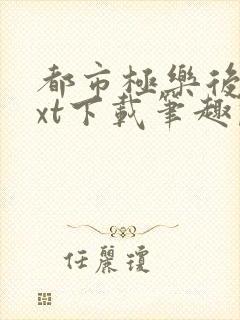 都市極樂後
xt下載筆趣
任麗瓊